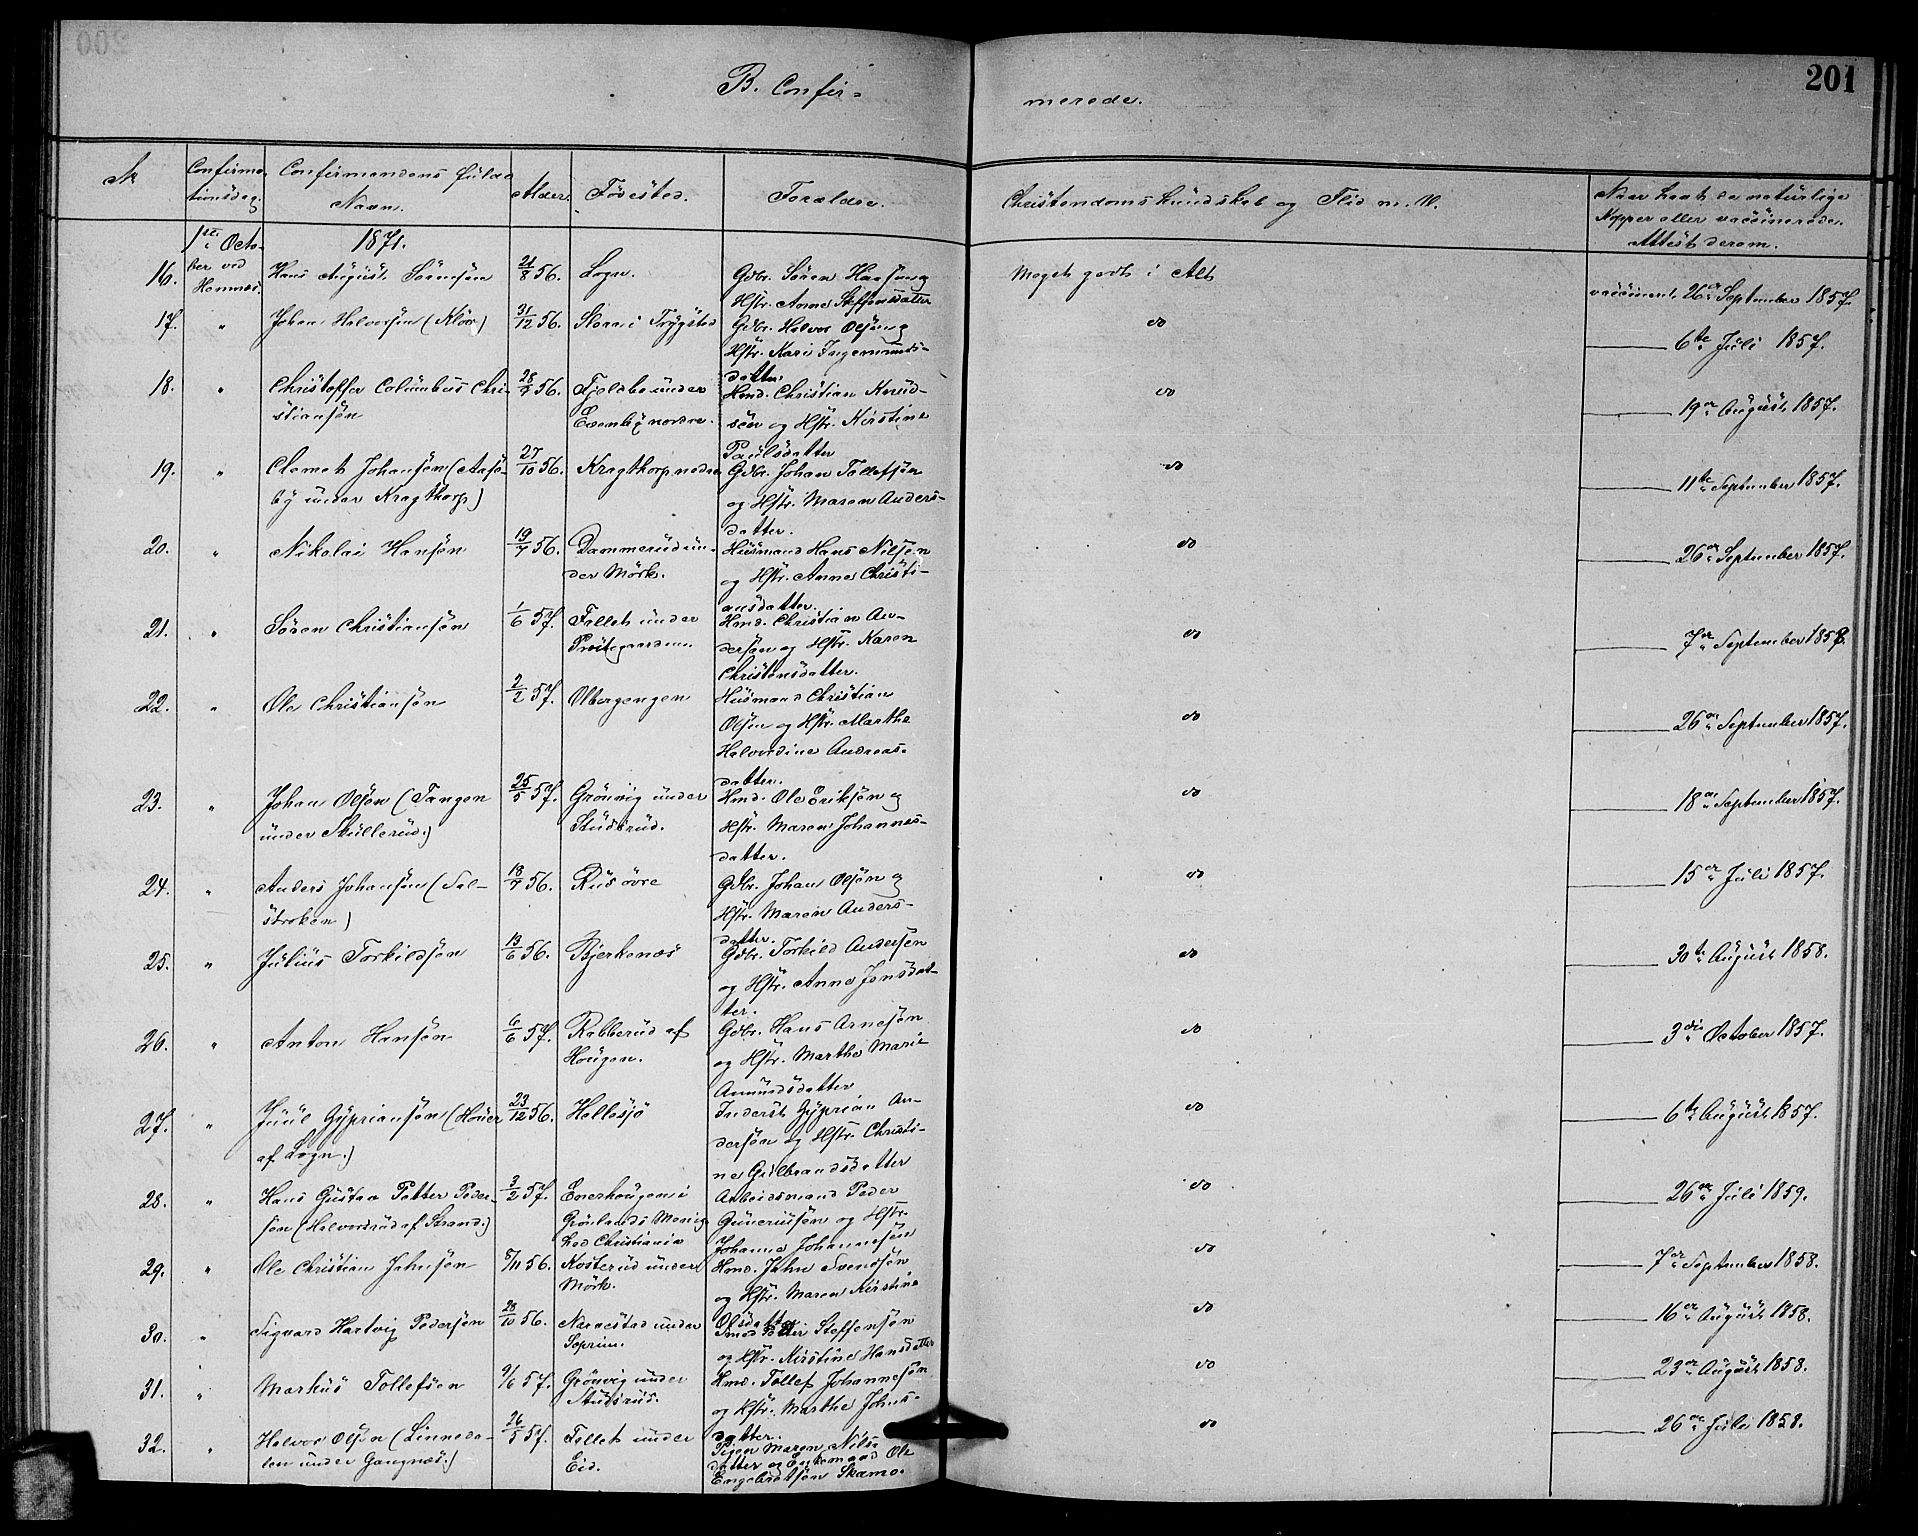 201
B. Confir-
merede.
№
Confirma-
tionsdag.
Confirmandens fulde
Navn.
Alder.
Fødested.
Forældre.
Christendoms Kundskab og Flid m. V.
Naar havt de naturlige
Kopper eller vaccinerede.
Attest derom.
1ste Octo-
ber ved
Hemnæs.
1871.
16. Hans August Sörensön 21/8 56. Sogn. Gdbr. Sören Hansen og
Hstr. Anne Steffensdatter
Meget godt i Alt
vaccineret 26de September 1857.
17. " Johan Halvorsön (Klör) 31/12 56. Skaar i Trygstad Gdbr. Halvor Olsön og
Hstr. Kari Ingemunds-
datter.
do 6te Juli 1857.
18. " Christoffer Columbus Chri-
stiansön 28/7 56. Fjeldbo under
Evenby nordre. Hmd. Christian Knud-
sön og Hstr. Kirstine
Paulsdatter
do 19de August 1857.
19. " Clemet Johansön (Aasö-
by under Kragtorp) 27/10 56. Kragthorp nedre Gdbr. Johan Tollefsön
og Hstr. Maren Anders-
datter.
do 11te September 1857.
20. " Nikolai Hansön 19/7 56. Dammerud un-
der Mörk. Husmand Hans Nilsön
og Hstr. Anne Christi-
ansdatter.
do 26de September 1857.
21. " Sören Christiansön 1/6 57. Fallet under
Præstegaarden. Hmd. Christian An-
dersön og Hstr. Karen
Christensdatter.
do 7de September 1858.
22. " Ole Christiansön 2/2 57. Olbergengen Husmand Christian
Olsön og Hstr. Marthe
Halvordine Andreas-
datter.
do 26de September 1857.
23. " Johan Olsön (Tangen
under Skullerud.) 25/5 57. Grönvig under
Studsrud. Hmd. Ole Eriksön og
Hstr. Maren Johannes-
datter.
do 18de September 1857.
24. " Anders Johansön (Sal-
stroken) 18/7 56. Ruus övre Gdbr. Johan Olsön og
Hstr. Maren Anders-
datter.
do 15de Juli 1857.
25. " Julius Torkildsön 13/6 56. Bjerkenæs Gdbr. Torkild Andersön
og Hstr. Anne Jensdat-
ter.
do 30te August 1858.
26. " Anton Hansön 6/6 57. Rabberud af
Hougen. Gdbr. Hans Arnesön
og Hstr. Marthe Marie
Amundsdatter
do 3die October 1857.
27. " Juul Gypriansön (Houer
af Sogn.) 23/12 56. Hellesjö Inderst Gyprian An-
dersön og Hstr. Christi-
ne Gulbrandsdatter
do 6te August 1857.
28. " Hans Gustav Petter Peder-
sön (Halvorsrud af Strand.) 3/2 57. Enerhougen i
Grönlands Menig-
hed Christiania Arbeidsmand Peder
Guneriusön og Hstr.
Johanne Johannesön
do 26de Juli 1859.
29. " Ole Christian Jahnsön 8/11 56. Kosterud under
Mörk. Hmd. Jahn Svendsön
og Hstr. Maren Kirstine
Olsdatter
do 7de September 1858.
30. " Sigvard Hartvig Pedersön 28/10 56. Narvestad under
Soprim. Smed Peder Steffensön
og Hstr. Kirstine Hansdatter
do 16de August 1858.
31. " Markus Tollefsen 9/6 57. Grönvig under
Studsrud. Hmd. Tollef Johannesön
og Hstr. Marthe Johns-
datter.
do 23de August 1858.
32. " Halvor Olsön (Linneda-
len under Gangnæs.) 26/5 57. Fallet under
Eid. Pigen Maren Nils-
datter og Enkemand Ole
Engebretsön Skamo.
do 26de Juli 1858.